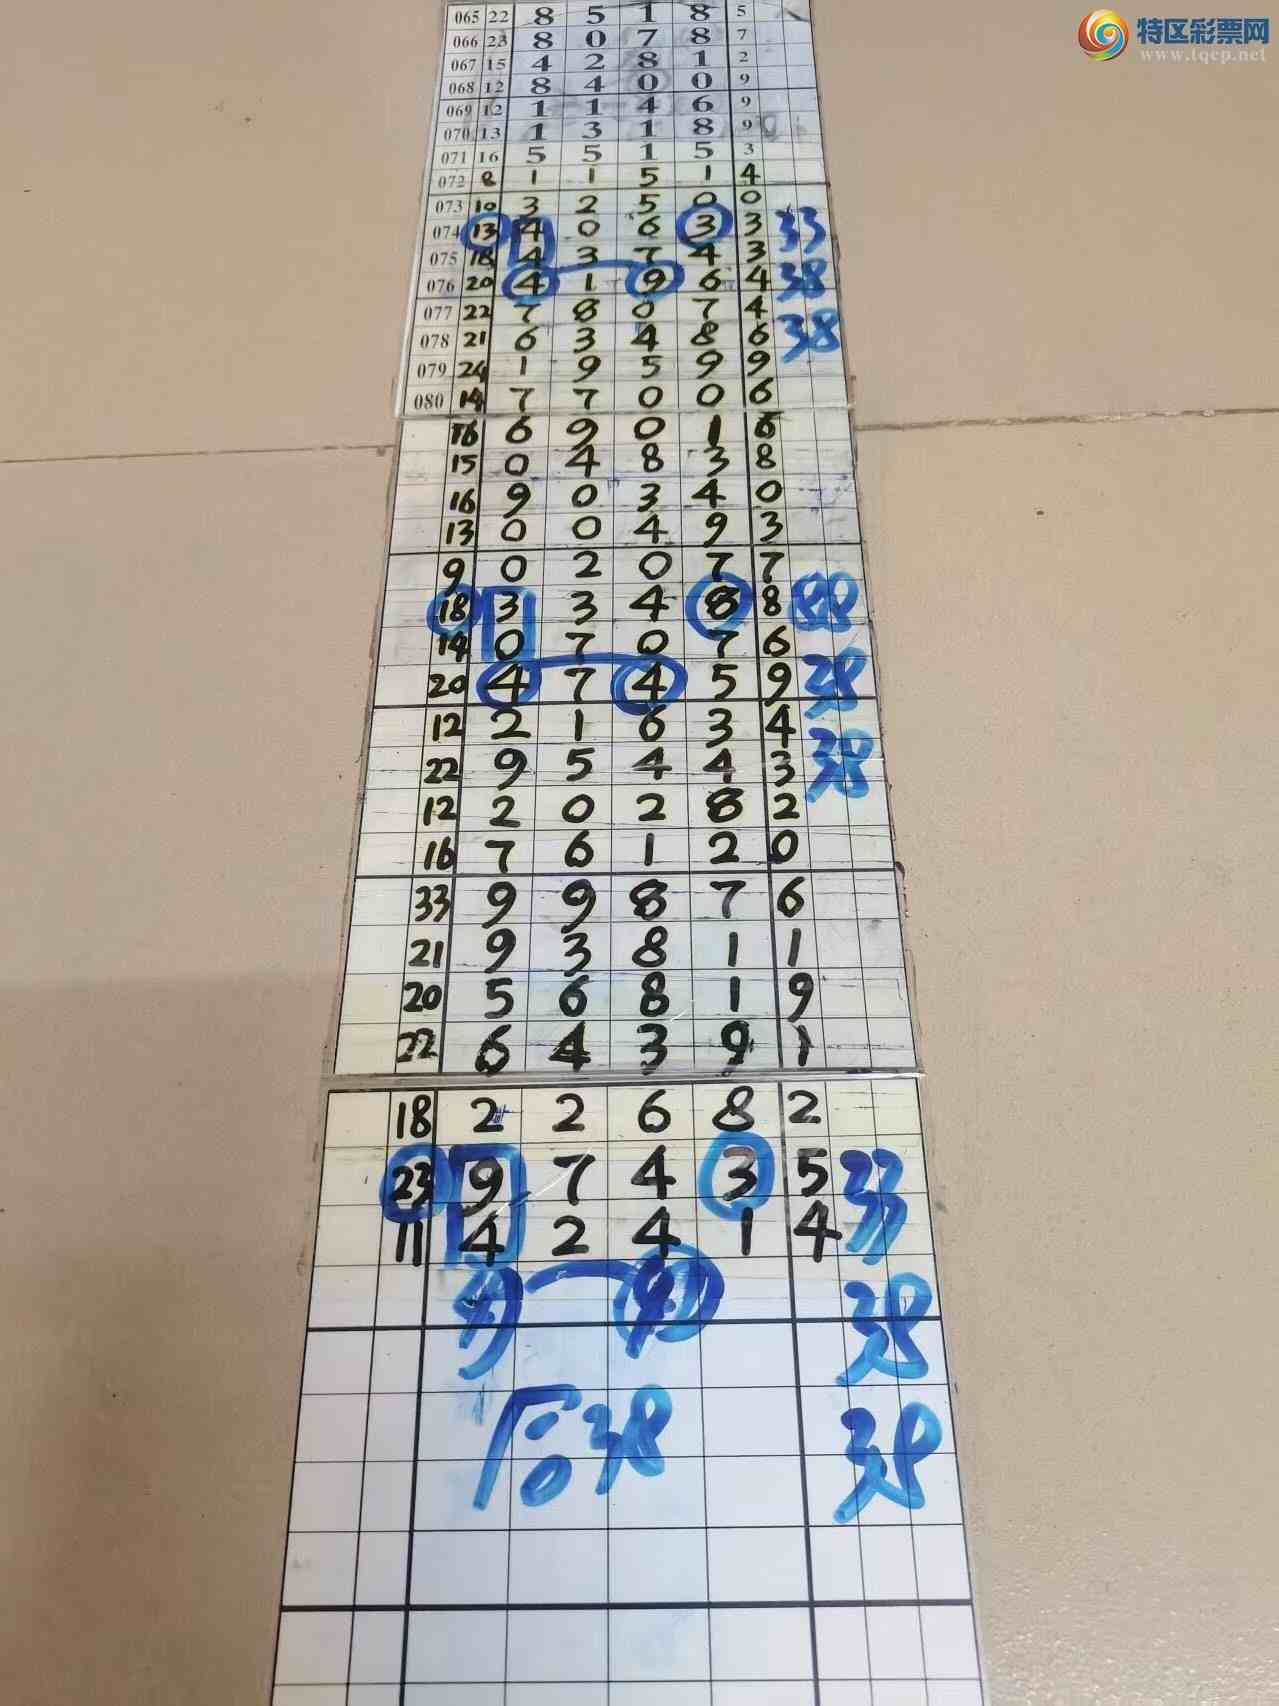 特区彩票网
www.tqcp.net
065 22 8 5 1 8 5
066 23 8 0 7 8 7
067 15 4 2 8 1 2
068 12 8 4 0 0 9
069 12 1 1 4 6 9
070 13 1 3 1 8 9
071 16 5 5 1 5 3
072 8 1 1 5 1 4
073 10 3 2 5 0 0
074 13 4 0 6 3 3 33
075 18 4 3 7 4 3
076 20 4 1 9 6 4 38
077 22 7 8 0 7 4
078 21 6 3 4 8 6 38
079 24 1 9 5 9 9
080 14 7 7 0 0 6
16 6 9 0 1 6
15 0 4 8 3 8
16 9 0 3 4 0
13 0 0 4 9 3
9 0 2 0 7 7
18 3 3 4 8 8 88
14 0 7 0 7 6
20 4 7 4 5 9 38
12 2 1 6 3 4
22 9 5 4 4 3 38
12 2 0 2 8 2
16 7 6 1 2 0
33 9 9 8 7 6
21 9 3 8 1 1
20 5 6 8 1 9
22 6 4 3 9 1
18 2 2 6 8 2
23 9 7 4 3 5 33
11 4 2 4 1 4
38
后38 38